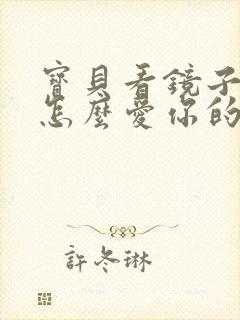 寶貝看鏡子
怎麼愛你的
許冬琳